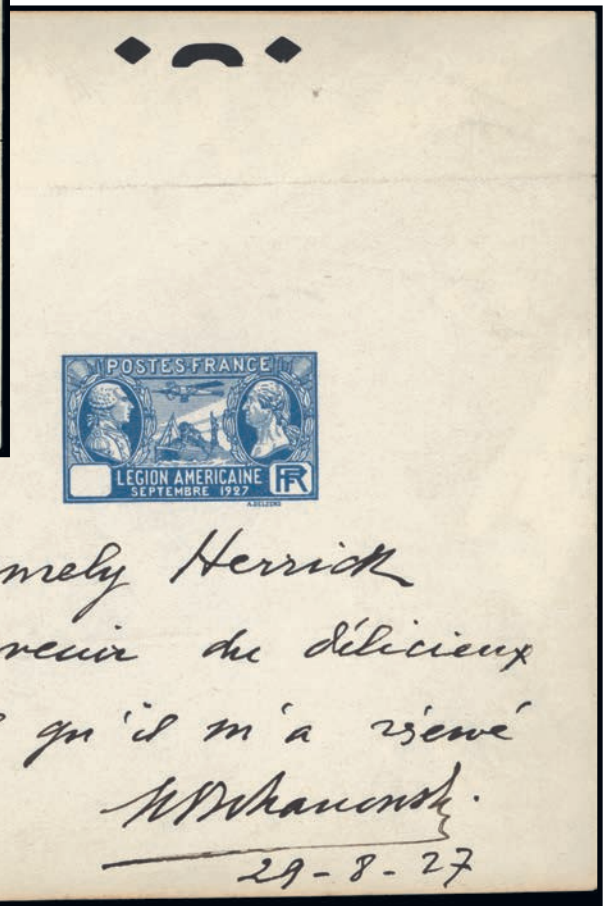 POSTES·FRANCE
LEGION AMERICAINE
SEPTEMBRE 1927
RF
A.DELZERS
mely Herrick
venir du délicieux
qu'il m'a réservé
29-8-27